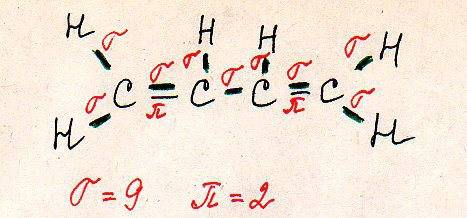 H σ H H σ H
σ C σ π C σ σ C σ σ π C σ
H H
σ = 9 π = 2